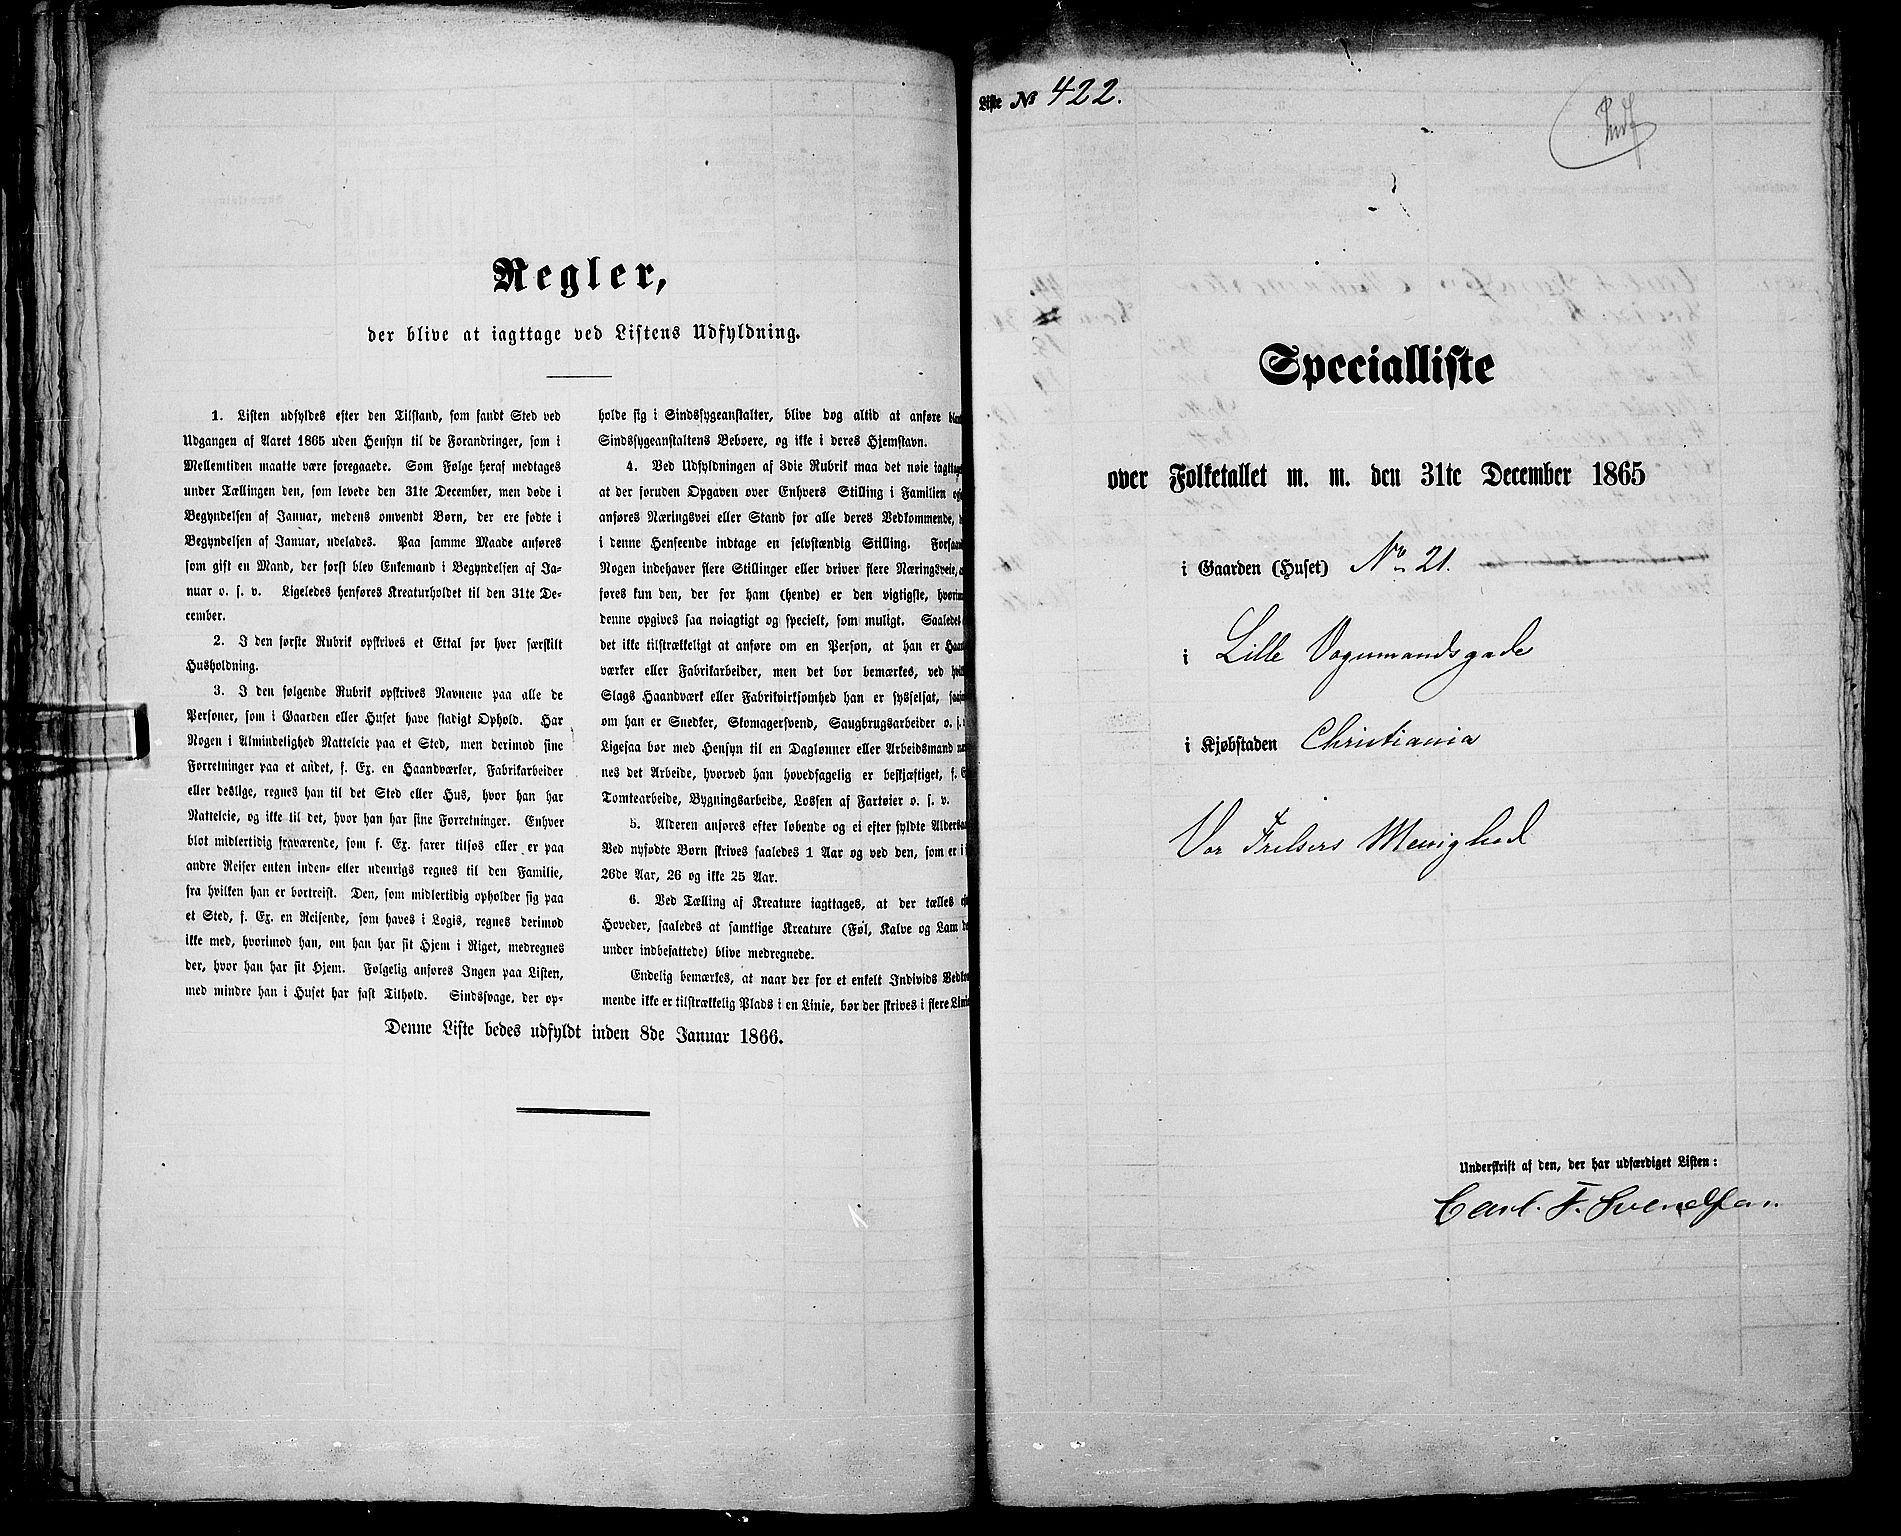 Regler,
der blive at iagttage ved Listens Udfyldning.
1. Listen udfyldes efter den Tilstand, som fandt Sted ved
Udgangen af Aaret 1865 uden Hensyn til de Forandringer, som i
Mellemtiden maatte være foregaaede. Som Følge heraf medtages
under Tællingen den, som levede den 31te December, men døde i
Begyndelsen af Januar, medens omvendt Børn, der ere fødte i
Begyndelsen af Januar, udelades. Paa samme Maade anføres
som gift en Mand, der først blev Enkemand i Begyndelsen af Ja-
nuar o. s. v. Ligeledes henføres Kreaturholdet til den 31te De-
cember.
2. I den første Rubrik opskrives et Ettal for hver særskilt
Husholdning.
3. I den følgende Rubrik opskrives Navnene paa alle de
Personer, som i Gaarden eller Huset have stadigt Ophold. Har
Nogen i Almindelighed Natteleie paa et Sted, men derimod sine
Forretninger paa et andet, f. Ex. en Haandværker, Fabrikarbeider
eller deslige, regnes han til det Sted eller Hus, hvor han har
Natteleie, og ikke til det, hvor han har sine Forretninger. Enhver
blot midlertidig fraværende, som f. Ex. farer tilsøs eller er paa
andre Reiser enten inden- eller udenrigs regnes til den Familie,
fra hvilken han er bortreist. Den, som midlertidig opholder sig paa
et Sted, f. Ex. en Reisende, som haves i Logis, regnes derimod
ikke med, hvorimod han, om han har sit Hjem i Riget, medregnes
der, hvor han har sit Hjem. Følgelig anføres Ingen paa Listen,
med mindre han i Huset har fast Tilhold. Sindssvage, der op-
holde sig i Sindssygeanstalter, blive dog altid at anføre
Sindssygeanstaltens Beboere, og ikke i deres Hjemstavn.
4. Ved Udfyldningen af 3die Rubrik maa det nøie
at der foruden Opgaven over Enhvers Stilling i Familien
anføres Næringsvei eller Stand for alle deres Vedkommende,
i denne Henseende indtage en selvstændig Stilling.
Nogen indehaver flere Stillinger eller driver flere Næringsveie,
føres kun den, der for ham (hende) er den vigtigste,
denne opgives saa nøiagtigt og specielt, som muligt. Saaledes
det ikke tilstrækkeligt at anføre om en Person, at han er
værker eller Fabrikarbeider, men det bør bemærkes, ved
Slags Haandværk eller Fabrikvirksomhed han er sysselsat,
om han er Snedker, Skomagersvend, Saugbrugsarbeider o. s.
Ligesaa bør med Hensyn til en Daglønner eller Arbeidsmand
nes det Arbeide, hvorved han hovedsagelig er beskjæftiget, f.
Tomtearbeide, Bygningsarbeide, Lossen af Fartøier o. s. v.
5. Alderen anføres efter løbende og ei efter fyldte
Ved nyfødte Børn skrives saaledes 1 Aar og ved den, som er i
26de Aar, 26 og ikke 25 Aar.
6. Ved Tælling af Kreature iagttages, at der tælles
Hoveder, saaledes at samtlige Kreature (Føl, Kalve og Lam
under indbefattede) blive medregnede.
Endelig bemærkes, at naar der for et enkelt Individs
mende ikke er tilstrækkelig Plads i en Linie, bør der skrives i flere
Denne Liste bedes udfyldt inden 8de Januar 1866.
Liste № 422.
Indf
Specialliste
over Folketallet m. m. den 31te December 1865
i Gaarden (Huset) No 21.
i Lille Vognmandsgade
i Kjøbstaden Christiania
Vor Frelsers Menighed
Underskrift af den, der har udfærdiget Listen:
Carl. F. Svendsen.